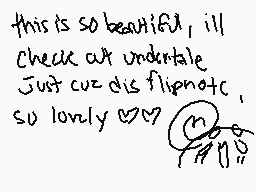 this is so beautiful, ill
check out undertale
just cuz dis flipnote,
so lovely ♡♡